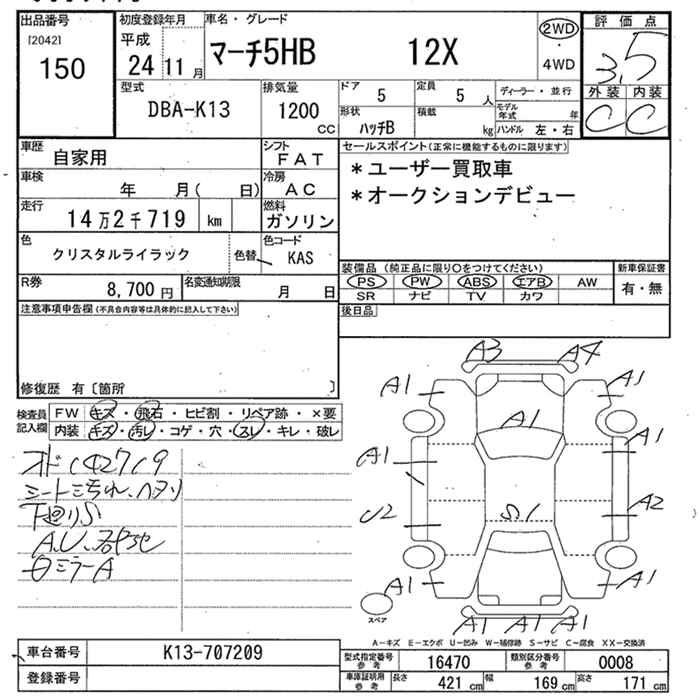 出品番号
[2042]
150
初度登録年月
平成
24 11 月
車名・グレード
マーチ5HB 12X
2WD
・
4WD
評価点
3.5
外装 内装
C C
型式
DBA-K13
排気量
1200
cc
ドア
5
定員
5 人
形状
ハッチB
積載
kg
ディーラー・並行
モデル年式 年
ハンドル 左・右
車歴
自家用
シフト
FAT
車検
年 月( 日)
冷房
AC
走行
14万2千719 km
燃料
ガソリン
色
クリスタルライラック
色替
色コード
KAS
R券
8,700 円
名変通知期限
月 日
セールスポイント(正常に機能するものに限ります)
*ユーザー買取車
*オークションデビュー
装備品 (純正品に限り○をつけてください)
PS PW ABS エアB AW
SR ナビ TV カワ
新車保証書
有・無
後日品
注意事項申告欄(不具合内容等は具体的に記入して下さい)
修復歴 有〔箇所 〕
検査員
記入欄
FW キズ・飛石・ヒビ割・リペア跡・×要
内装 キズ・汚レ・コゲ・穴・スレ・キレ・破レ
142719
下廻りS
A.U.
ミラーA
A3 A4
A1 A1
A1
A1 A1
U2 S1 A2
A1 A1
A1 A1 A1
スペア
A-キズ E-エクボ U-凹み W-補修跡 S-サビ C-腐食 XX-交換済
車台番号
K13-707209
登録番号
型式指定番号
参考
16470
類別区分番号
参考
0008
車庫証明用
参考
長さ
421 cm
幅
169 cm
高さ
171 cm